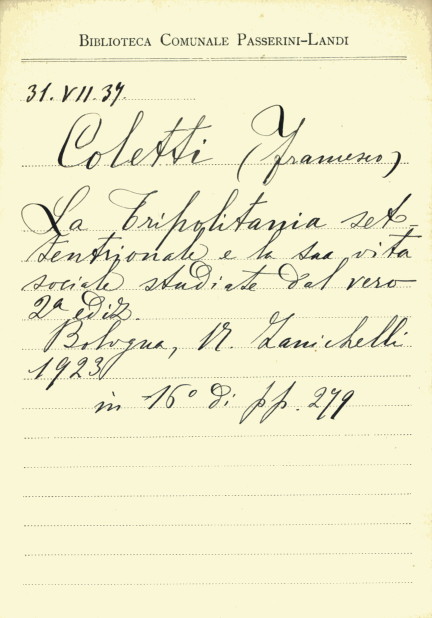 BIBLIOTECA COMUNALE PASSERINI-LANDI
31.VII.37.
Coletti (Francesco)
La Tripolitania set-
tentrionale e la sua vita
sociale studiate dal vero
2ª ediz.
Bologna, N. Zanichelli
1923
in 16° di pp. 279